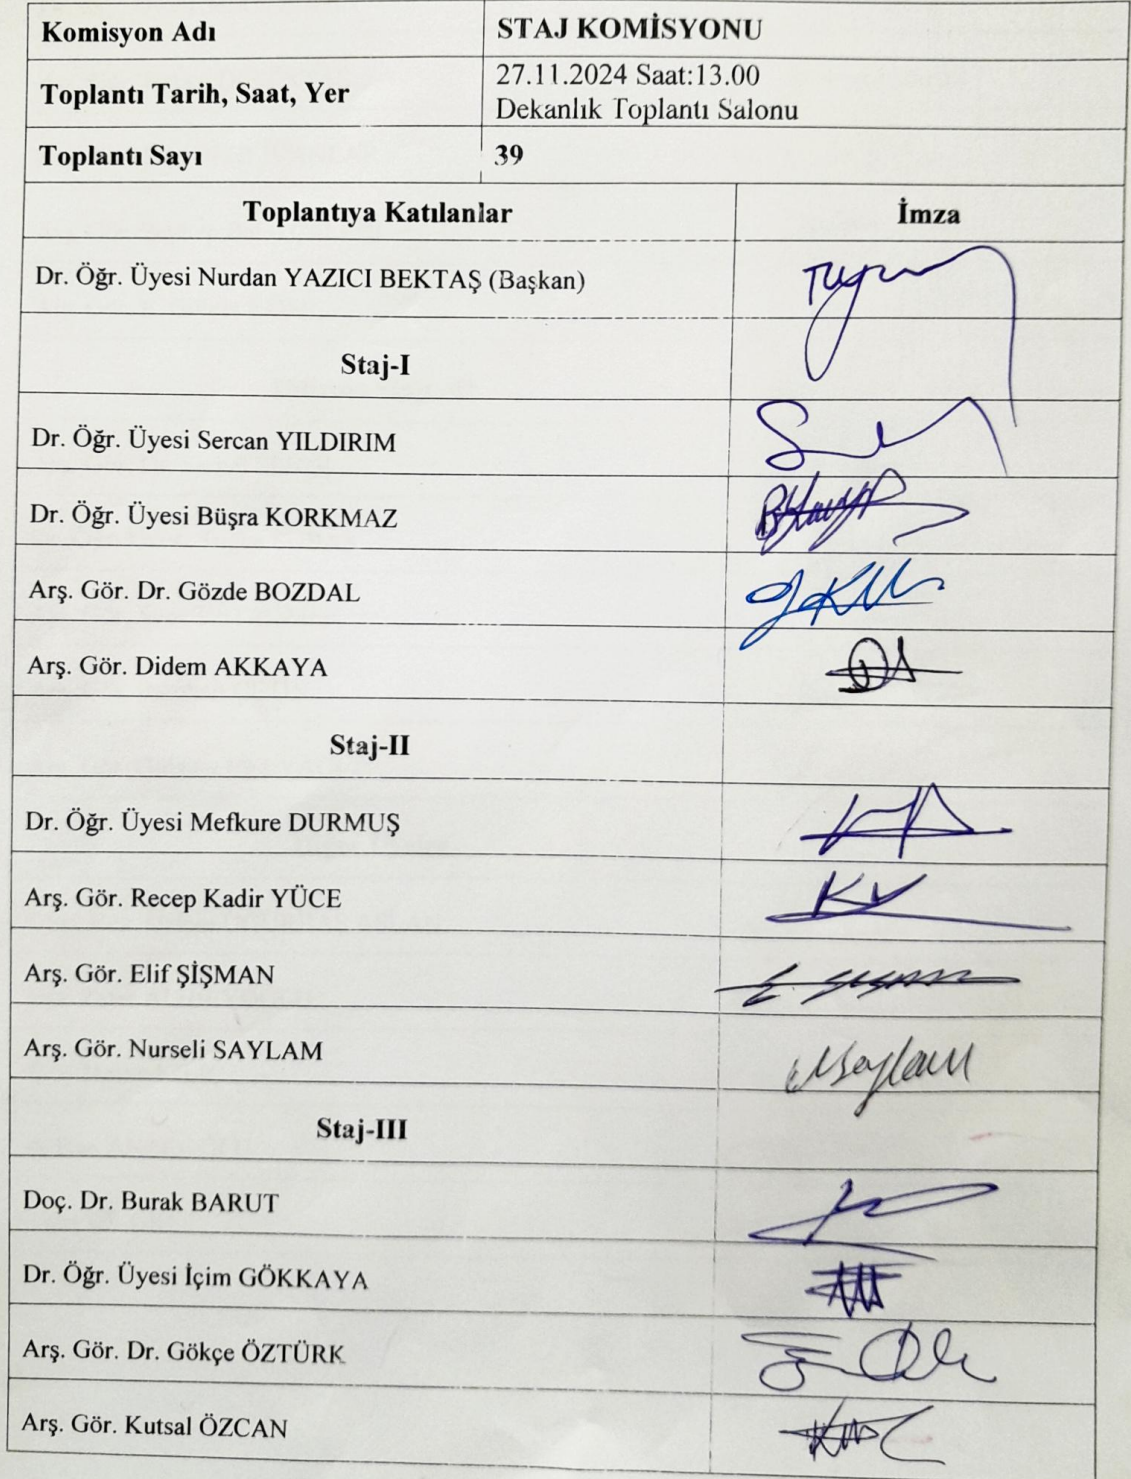 Komisyon Adı STAJ KOMİSYONU
Toplantı Tarih, Saat, Yer 27.11.2024 Saat:13.00
Dekanlık Toplantı Salonu
Toplantı Sayı 39
Toplantıya Katılanlar İmza
Dr. Öğr. Üyesi Nurdan YAZICI BEKTAŞ (Başkan)
Staj-I
Dr. Öğr. Üyesi Sercan YILDIRIM
Dr. Öğr. Üyesi Büşra KORKMAZ
Arş. Gör. Dr. Gözde BOZDAL
Arş. Gör. Didem AKKAYA
Staj-II
Dr. Öğr. Üyesi Mefkure DURMUŞ
Arş. Gör. Recep Kadir YÜCE
Arş. Gör. Elif ŞİŞMAN
Arş. Gör. Nurseli SAYLAM
Staj-III
Doç. Dr. Burak BARUT
Dr. Öğr. Üyesi İçim GÖKKAYA
Arş. Gör. Dr. Gökçe ÖZTÜRK
Arş. Gör. Kutsal ÖZCAN